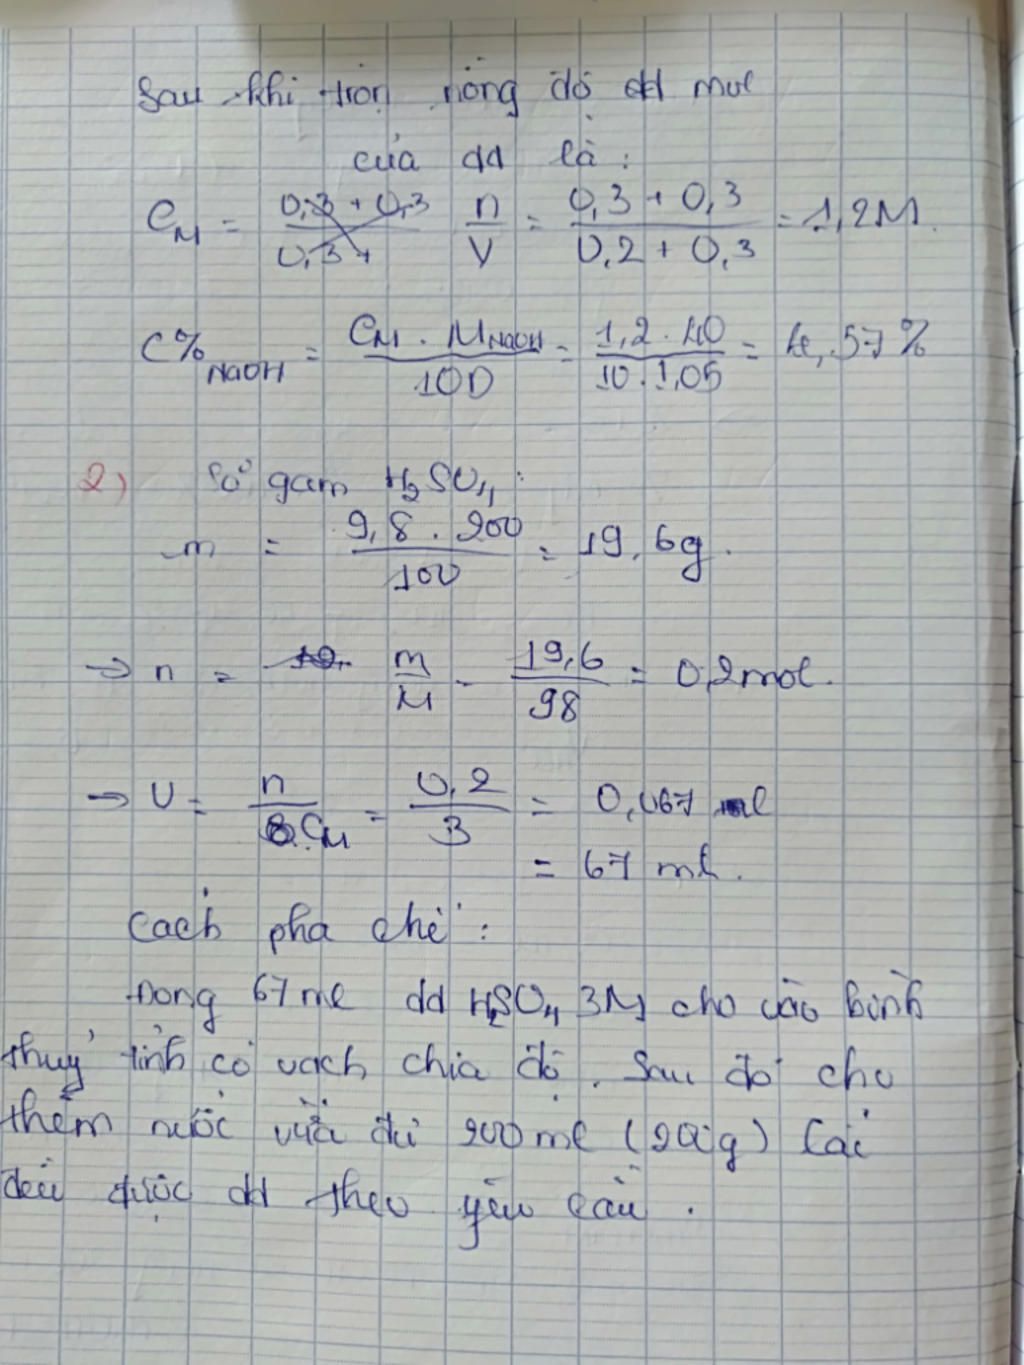 Sau khi trộn nồng độ dd mol
của dd là :
C_M = n/V = (0,3 + 0,3)/(0,2 + 0,3) = 1,2M.
C%_NaOH = (C_M . M_NaOH)/10D = (1,2 . 40)/(10 . 1,05) = 4,57%
2) Số gam H₂SO₄ :
m = (9,8 . 200)/100 = 19,6g.
→ n = m/M = 19,6/98 = 0,2mol.
→ V = n/C_M = 0,2/3 = 0,067 l
= 67 ml.
Cách pha chế :
Đong 67ml dd H₂SO₄ 3M cho vào bình
thuỷ tinh có vạch chia độ. Sau đó cho
thêm nước vừa đủ 200ml (200g) lắc
đều được dd theo yêu cầu.